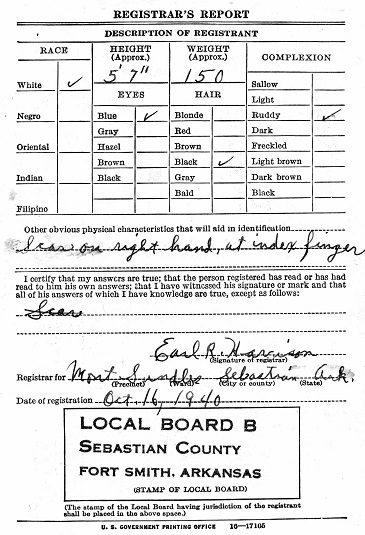 REGISTRAR'S REPORT
DESCRIPTION OF REGISTRANT
RACE
HEIGHT (Approx.)
WEIGHT (Approx.)
COMPLEXION
5' 7"
150
White ✓
Sallow
Light
EYES
HAIR
Negro
Blue ✓
Blonde
Ruddy ✓
Gray
Red
Dark
Oriental
Hazel
Brown
Freckled
Brown
Black ✓
Light brown
Indian
Black
Gray
Dark brown
Bald
Black
Filipino
Other obvious physical characteristics that will aid in identification
Scar on right hand, at index finger
I certify that my answers are true; that the person registered has read or has had
read to him his own answers; that I have witnessed his signature or mark and that
all of his answers of which I have knowledge are true, except as follows:
Scar
Earl R. Harrison
(Signature of registrar)
Registrar for Mont Sebastian Ark.
(Precinct) (Ward) (City or county) (State)
Date of registration Oct. 16, 1940
LOCAL BOARD B
SEBASTIAN COUNTY
FORT SMITH, ARKANSAS
(STAMP OF LOCAL BOARD)
(The stamp of the Local Board having jurisdiction of the registrant
shall be placed in the above space.)
U. S. GOVERNMENT PRINTING OFFICE 16—17105